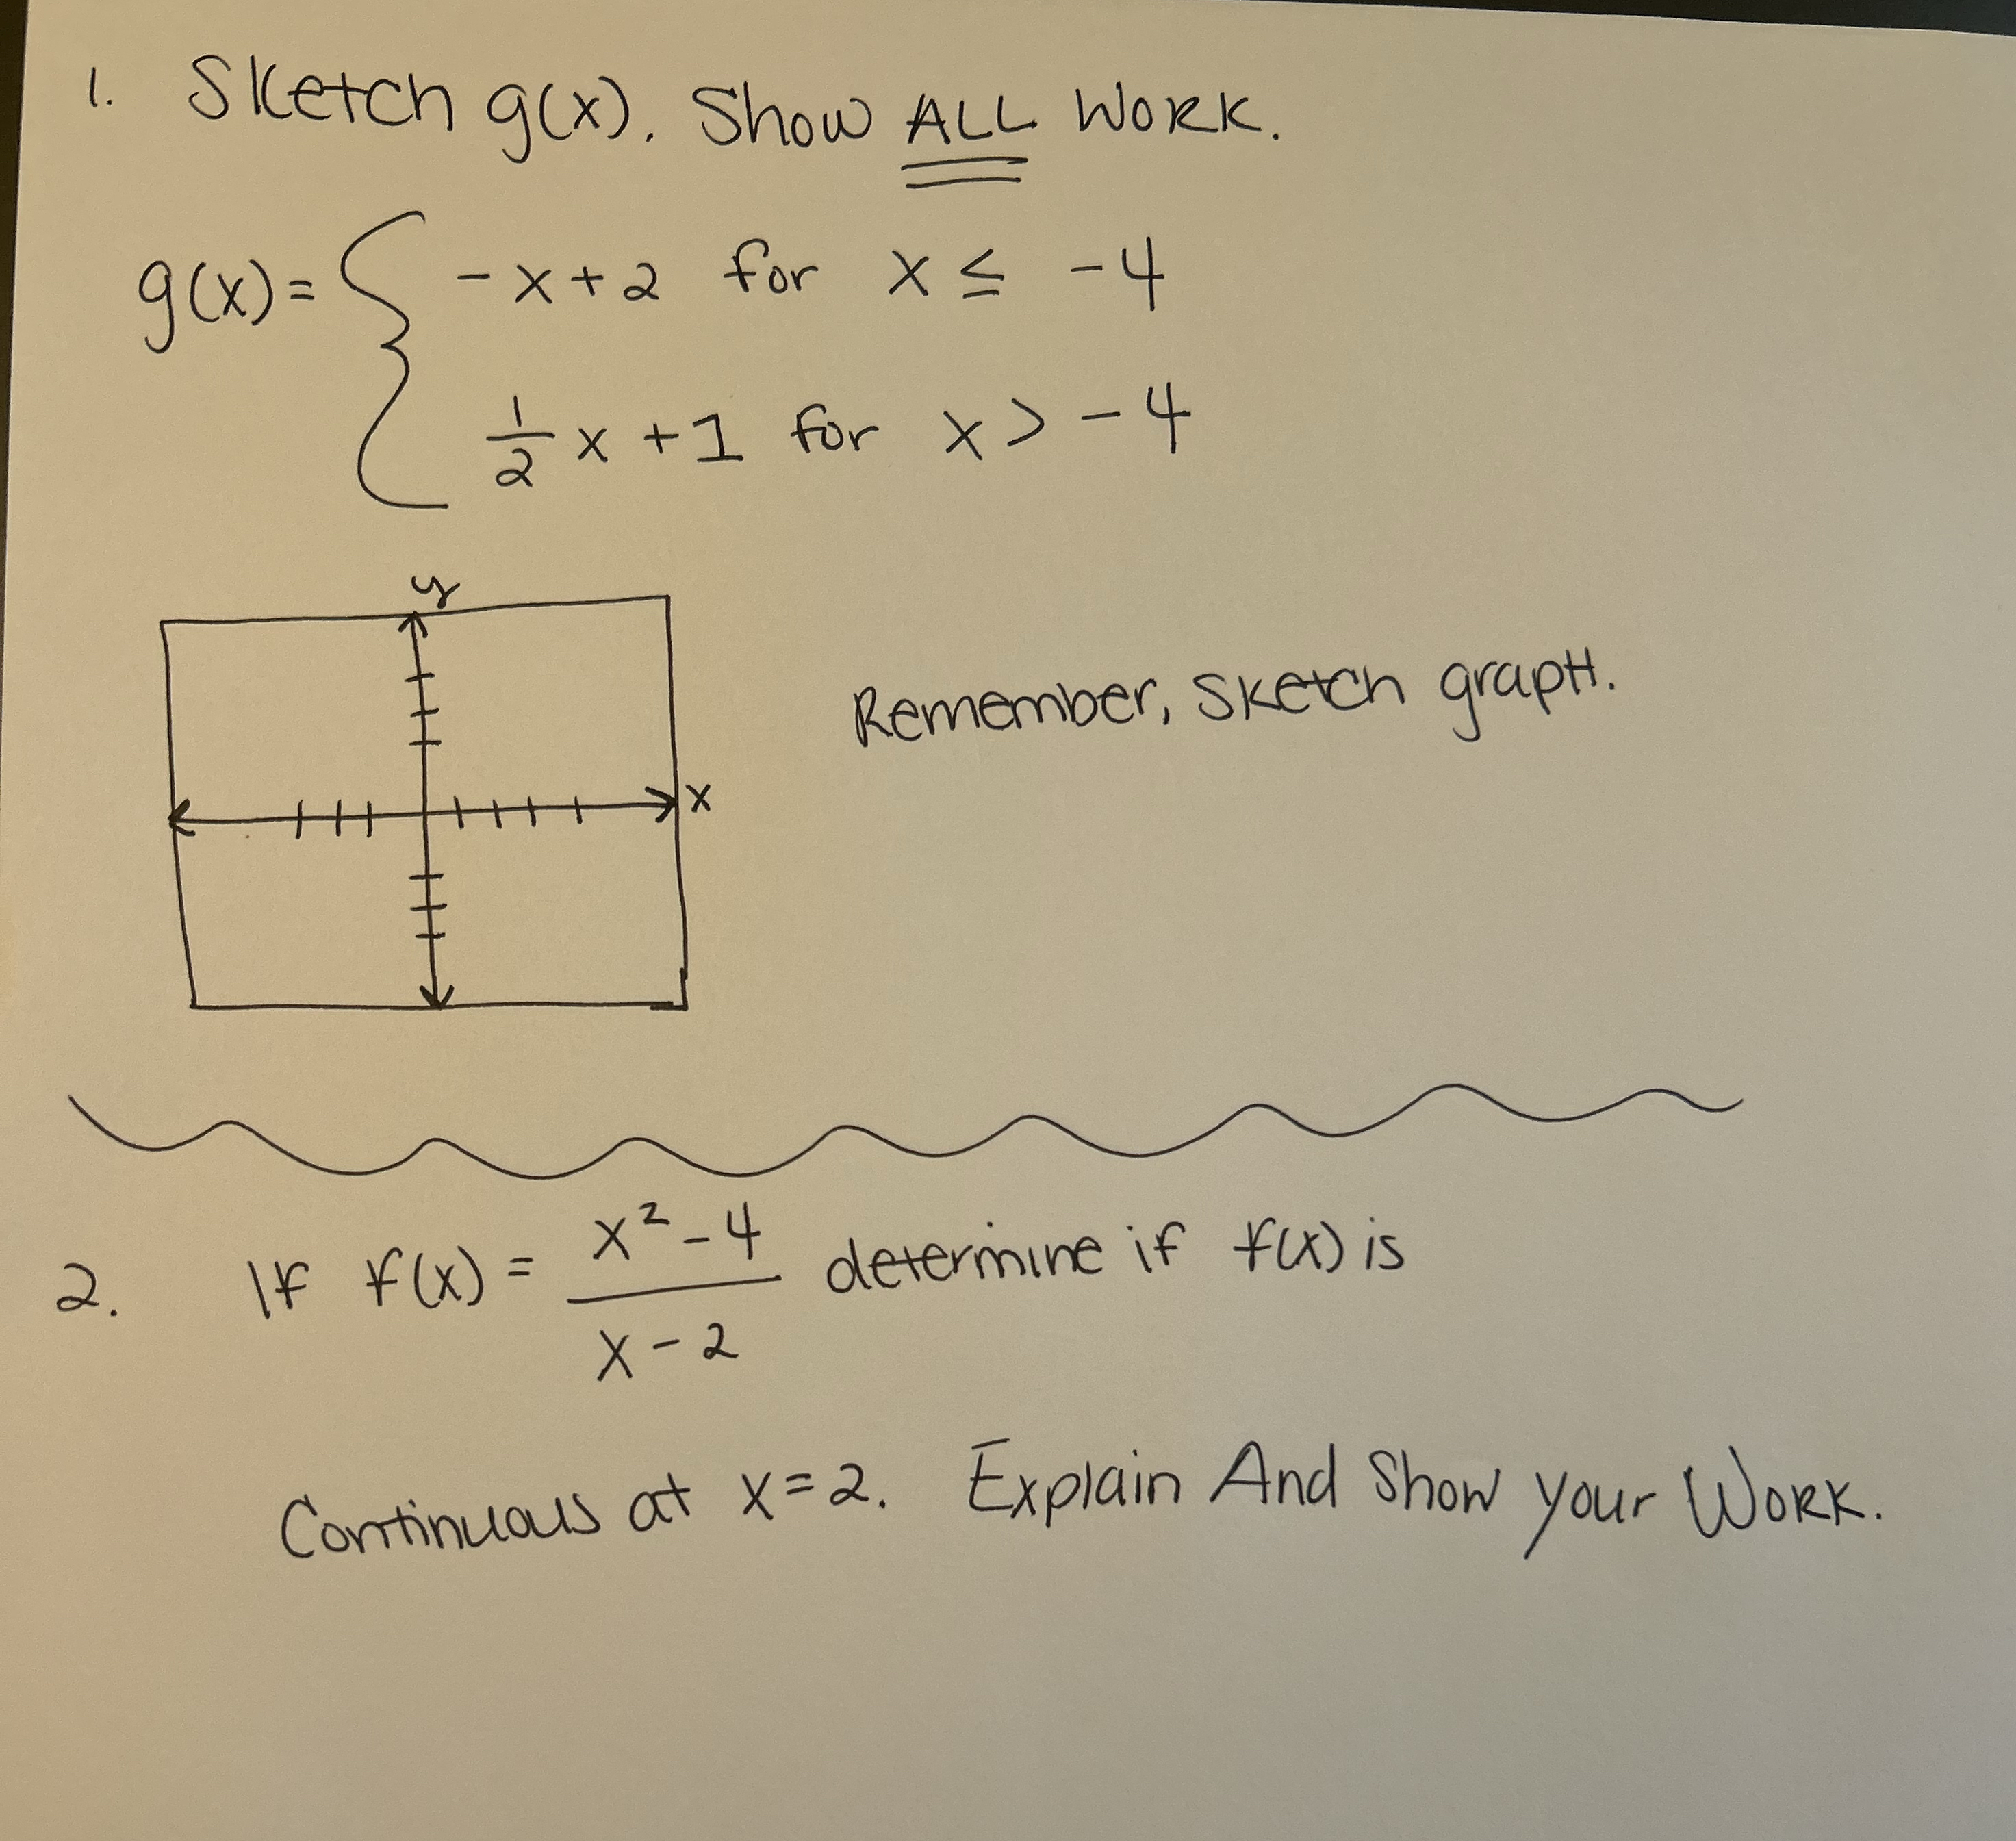 1. Sketch g(x). Show ALL Work.
g(x) = { -x+2 for x ≤ -4
1/2 x + 1 for x > -4
y
x
Remember, sketch graph.
2. If f(x) = (x² - 4)/(x - 2) determine if f(x) is
Continuous at x=2. Explain And Show your Work.